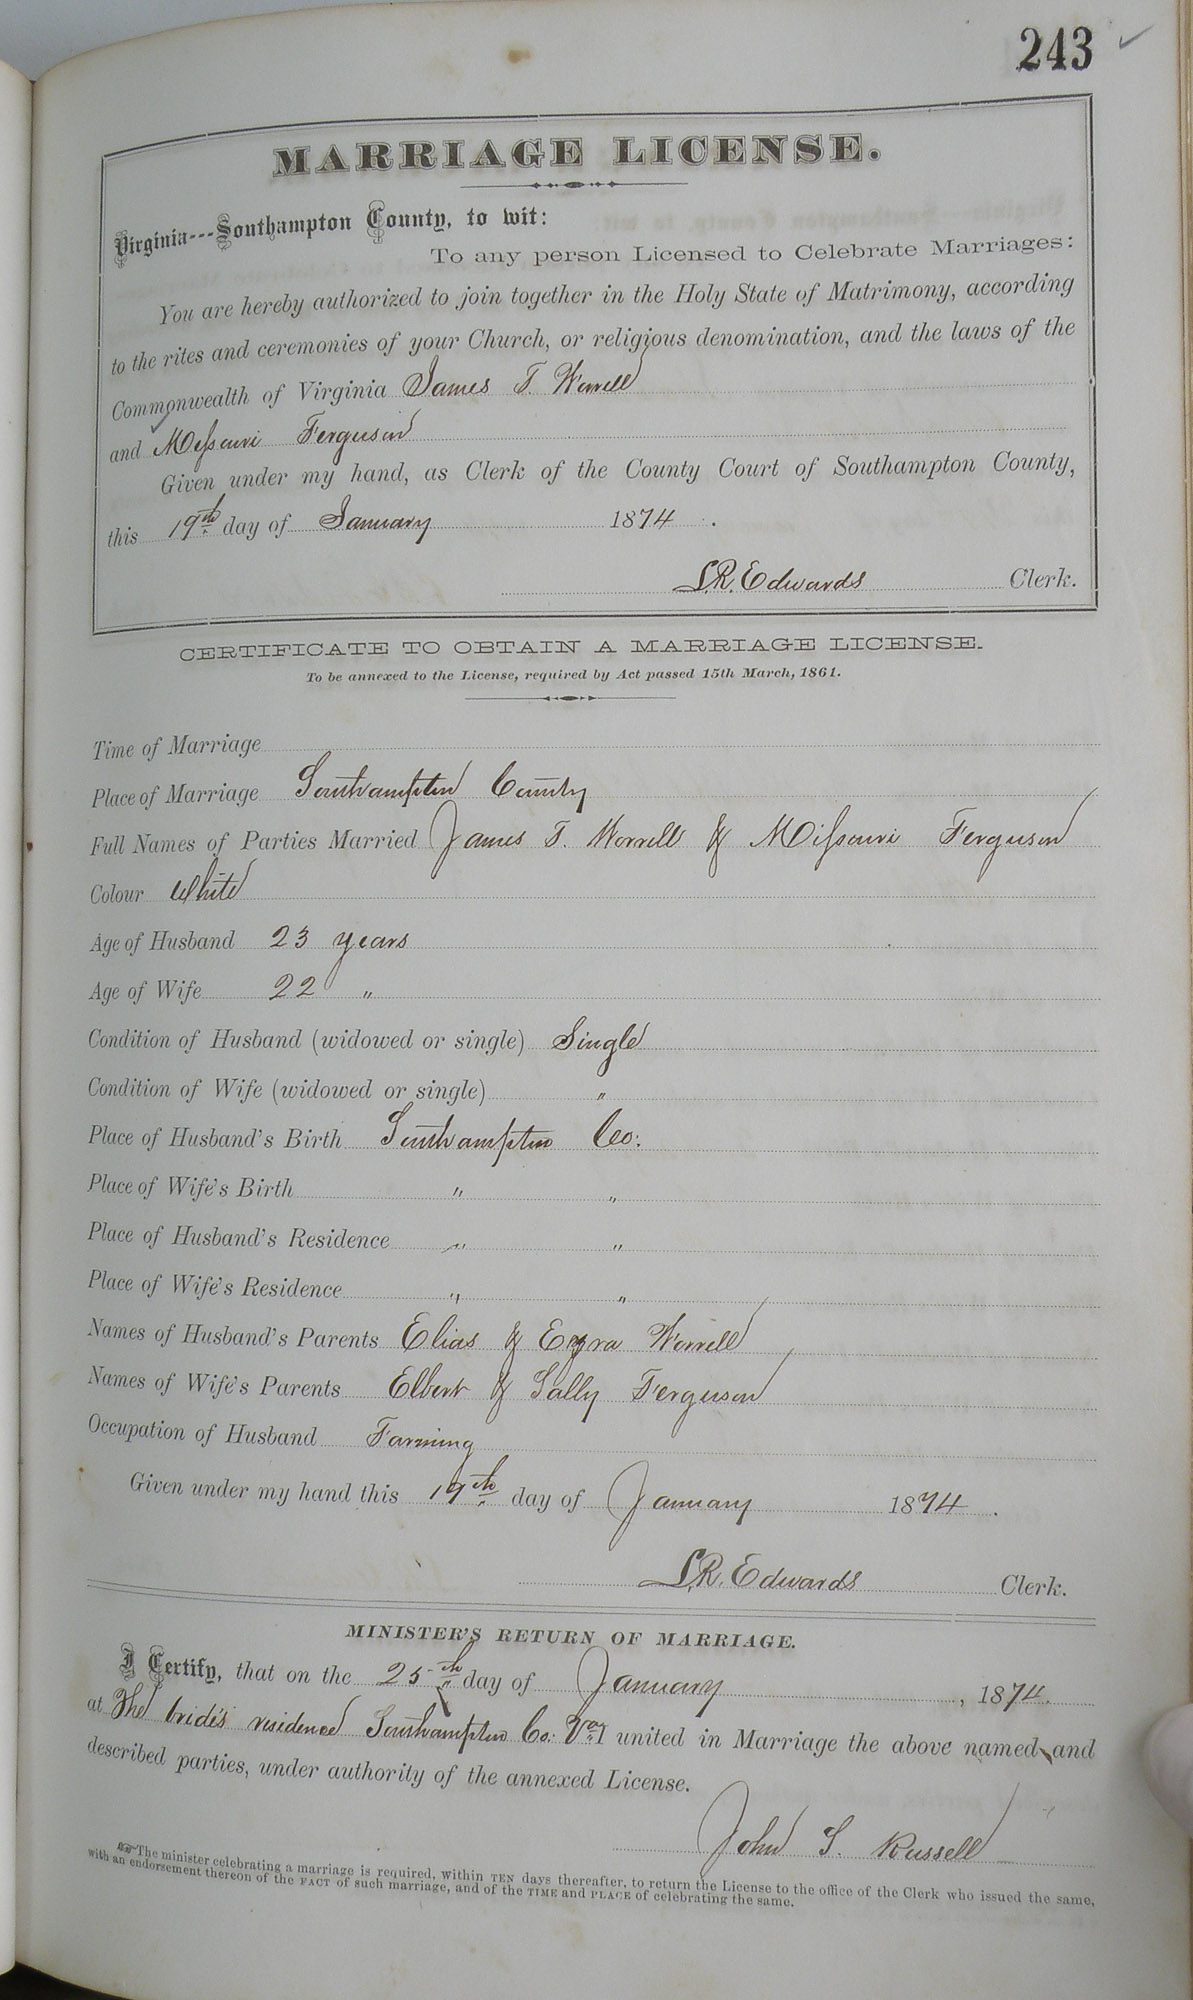 243
MARRIAGE LICENSE.
Virginia---Southampton County, to wit:
To any person Licensed to Celebrate Marriages:
You are hereby authorized to join together in the Holy State of Matrimony, according
to the rites and ceremonies of your Church, or religious denomination, and the laws of the
Commonwealth of Virginia James T. Worrell
and Missouri Ferguson
Given under my hand, as Clerk of the County Court of Southampton County,
this 19th day of January 1874.
L.R. Edwards Clerk.
CERTIFICATE TO OBTAIN A MARRIAGE LICENSE.
To be annexed to the License, required by Act passed 15th March, 1861.
Time of Marriage
Place of Marriage Southampton County
Full Names of Parties Married James T. Worrell & Missouri Ferguson
Colour White
Age of Husband 23 years
Age of Wife 22 "
Condition of Husband (widowed or single) Single
Condition of Wife (widowed or single) "
Place of Husband's Birth Southampton Co:
Place of Wife's Birth " "
Place of Husband's Residence " "
Place of Wife's Residence " "
Names of Husband's Parents Elias & Worrell
Names of Wife's Parents Elbert & Sally Ferguson
Occupation of Husband Farming
Given under my hand this 19th day of January 1874.
L.R. Edwards Clerk.
MINISTER'S RETURN OF MARRIAGE.
I Certify, that on the 25th day of January, 1874.
at The bride's residence Southampton Co: Va united in Marriage the above named and
described parties, under authority of the annexed License.
John S. Russell
☞ The minister celebrating a marriage is required, within TEN days thereafter, to return the License to the office of the Clerk who issued the same,
with an endorsement thereon of the FACT of such marriage, and of the TIME and PLACE of celebrating the same.